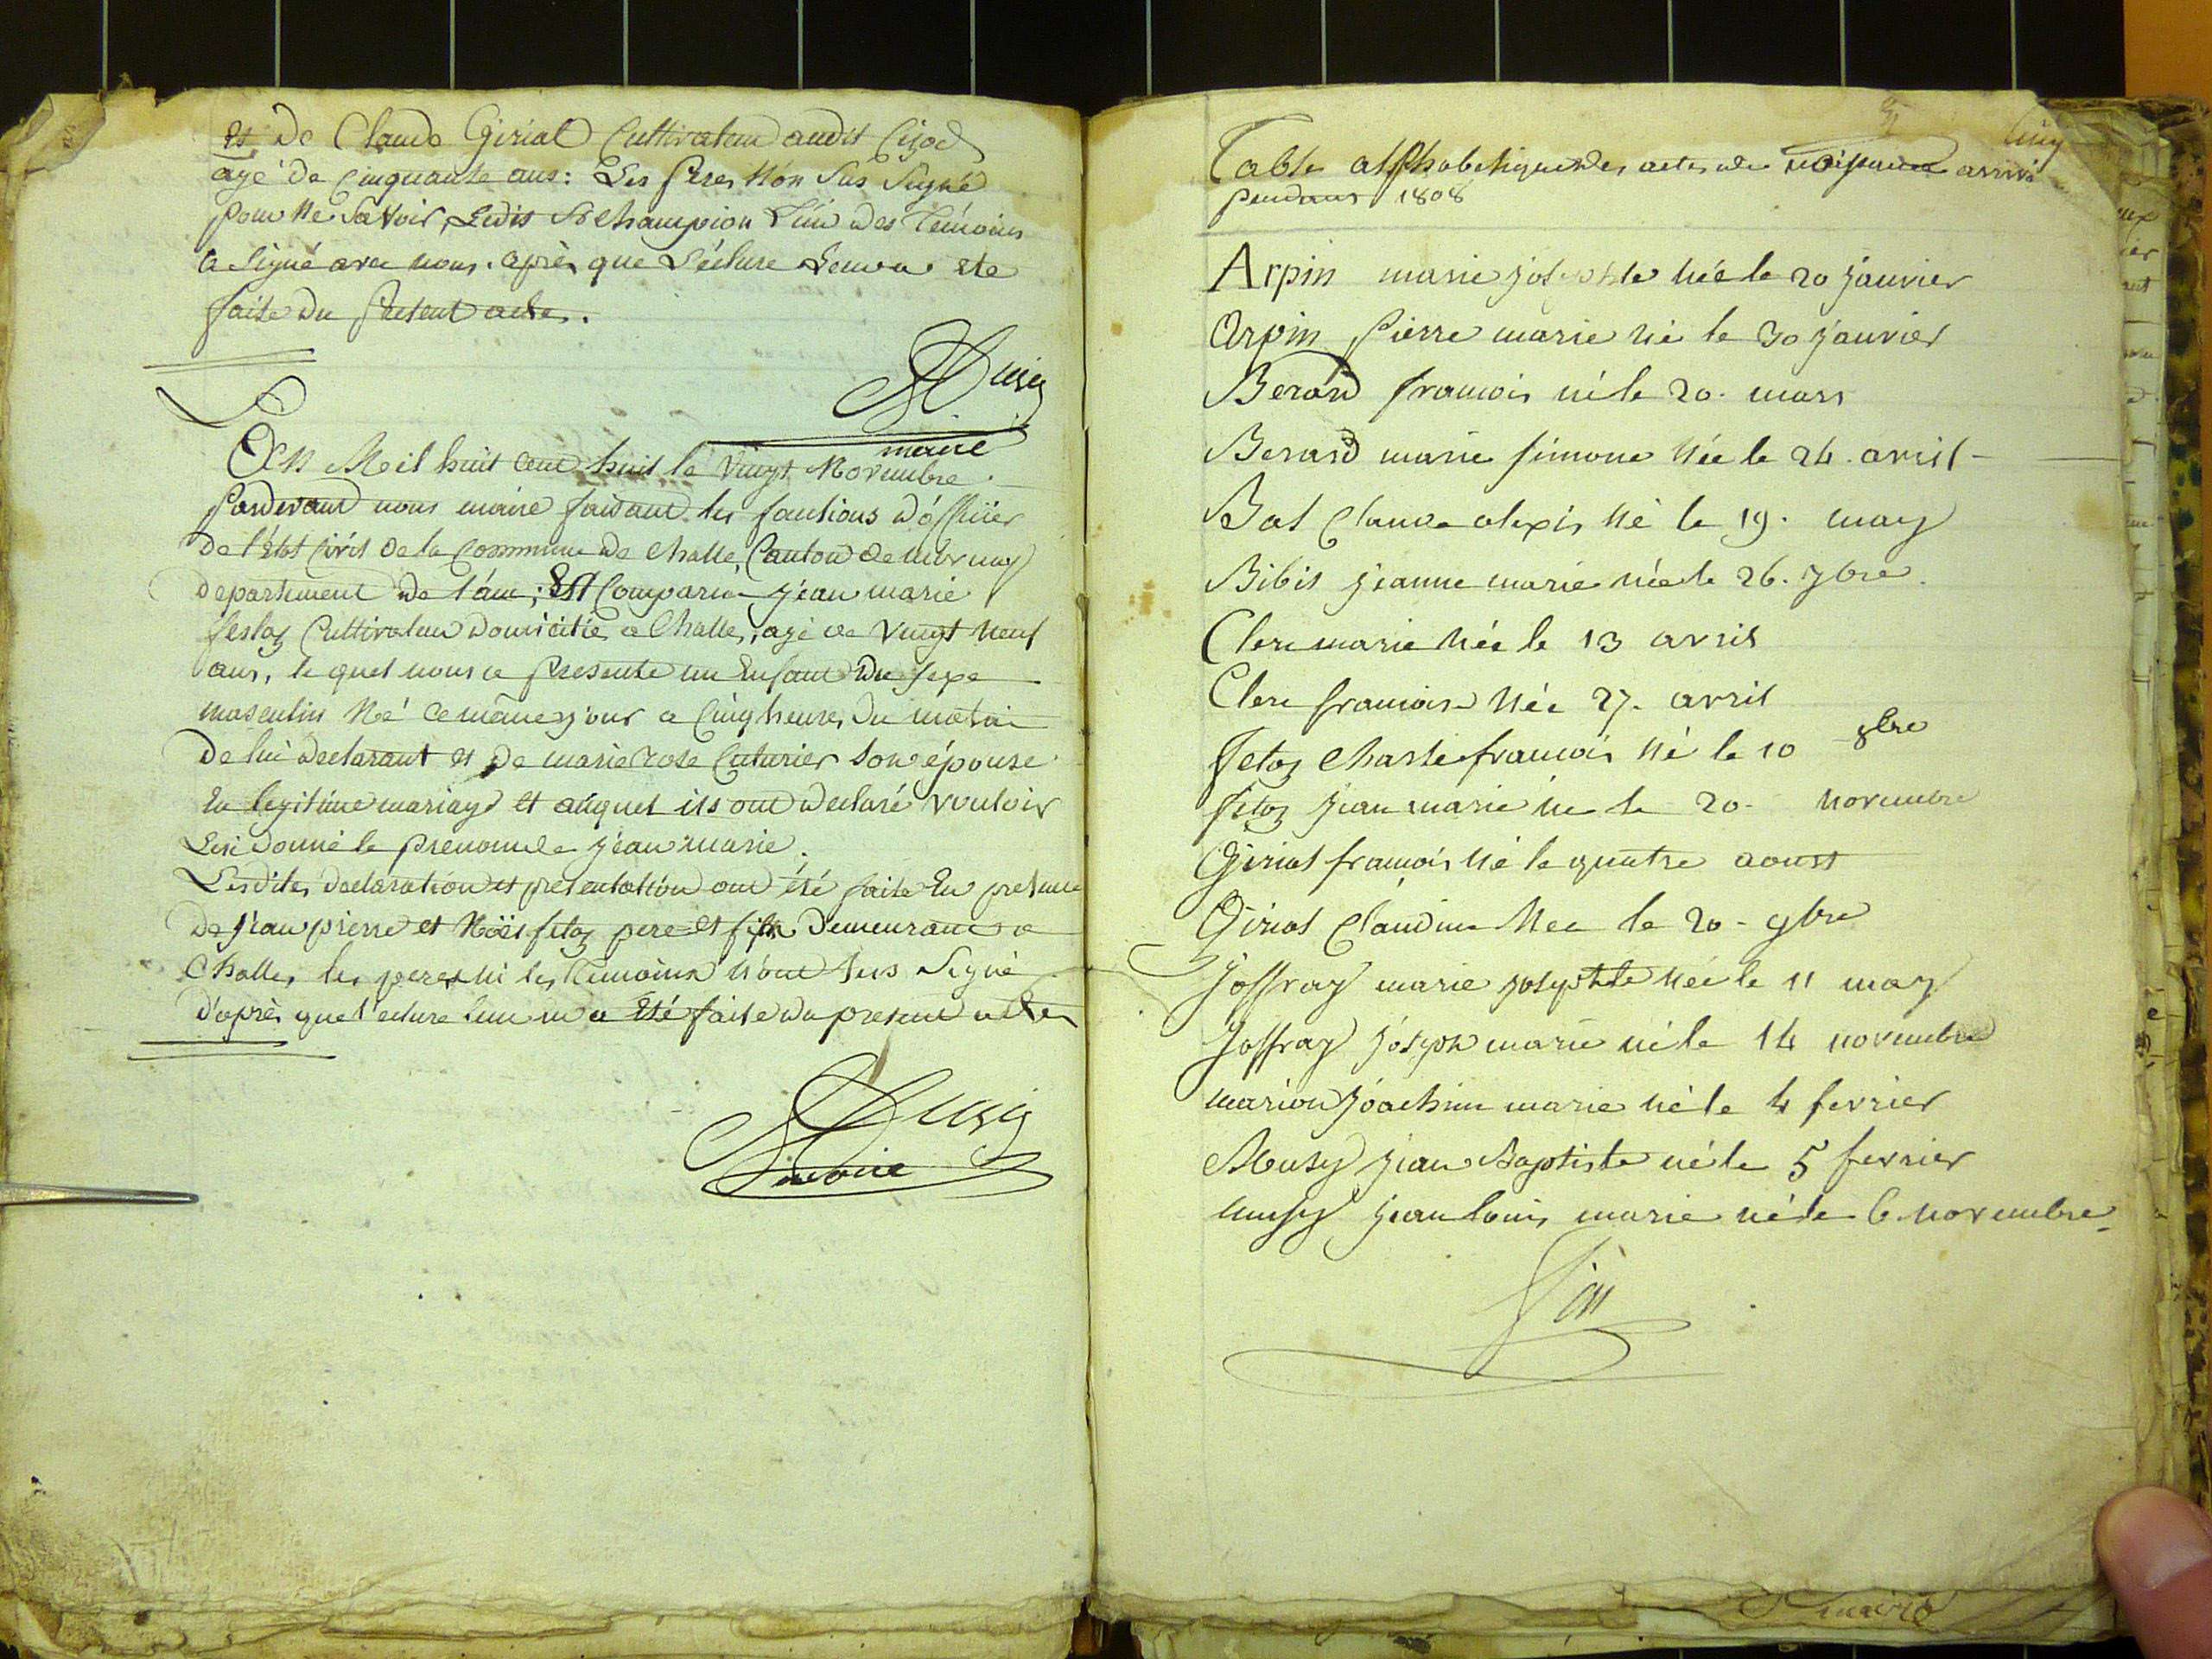 et de Claude Girial Cultivateur audit Cizod
agé de Cinquante ans: Les peres N'on Sus Signé
pour Ne Savoir, Ledit Sr Champion L'un des Temoins
a Signé avec nous. après que L'ecture Leur a ete
faite du present acte.
Musy
maire
L'an Meil huit cent huit le vingt Novembre
Pardevant nous maire faisant les fontions d'offiiier
de l'Etat Civil de la Commune de Challe, Canton de
departement de l'ain; Est Comparu jean marie
festaz Cultivateur Domicilié a Challes, agé de vingt Neuf
ans, le quel nous a presenté un Enfant du sexe
masculin Né ce même jour a Cinq heures du matin
de lui declarant et de marie rose Cuturier son épouse
En legitime mariage et auquel ils ont declaré vouloir
Lui donné le prenom de jean marie.
Lesdites declaration et presentation ont été faite En presence
de jean pierre et Noël fetaz pere et fils demeurant a
Challes, les peres ni les Temoins N'ont sus Signé
d'après que l'ecture leur a Eté faite du present acte
Musy
maire
5
Cinq
Table alphabetique des actes de naissance arrivé
pendant 1808
Arpin marie josephte Née le 20 janvier
Arpin Pierre marie Né le 30 janvier
Berard francois né le 20. mars
Berard marie simone Née le 24. avril
Bat Claude alexis Né le 19. may
Bibit jeanne marie née le 26. 7bre.
Clere marie Née le 13 avril
Clere francoise Née 27. avril
Fetaz Charle francois Né le 10 8bre
fetaz jean marie né le 20. Novembre
Giriat francois Né le quatre aoust
Giriat Claudine Nee le 20 - 9bre
Joffray marie josephte Née le 11 may
Joffray joseph marie né le 14 novembre
marion joachim marie né le 4 fevrier
Musy jean Baptiste né le 5 fevrier
musy jean louis marie né le 6 novembre
fin
maire